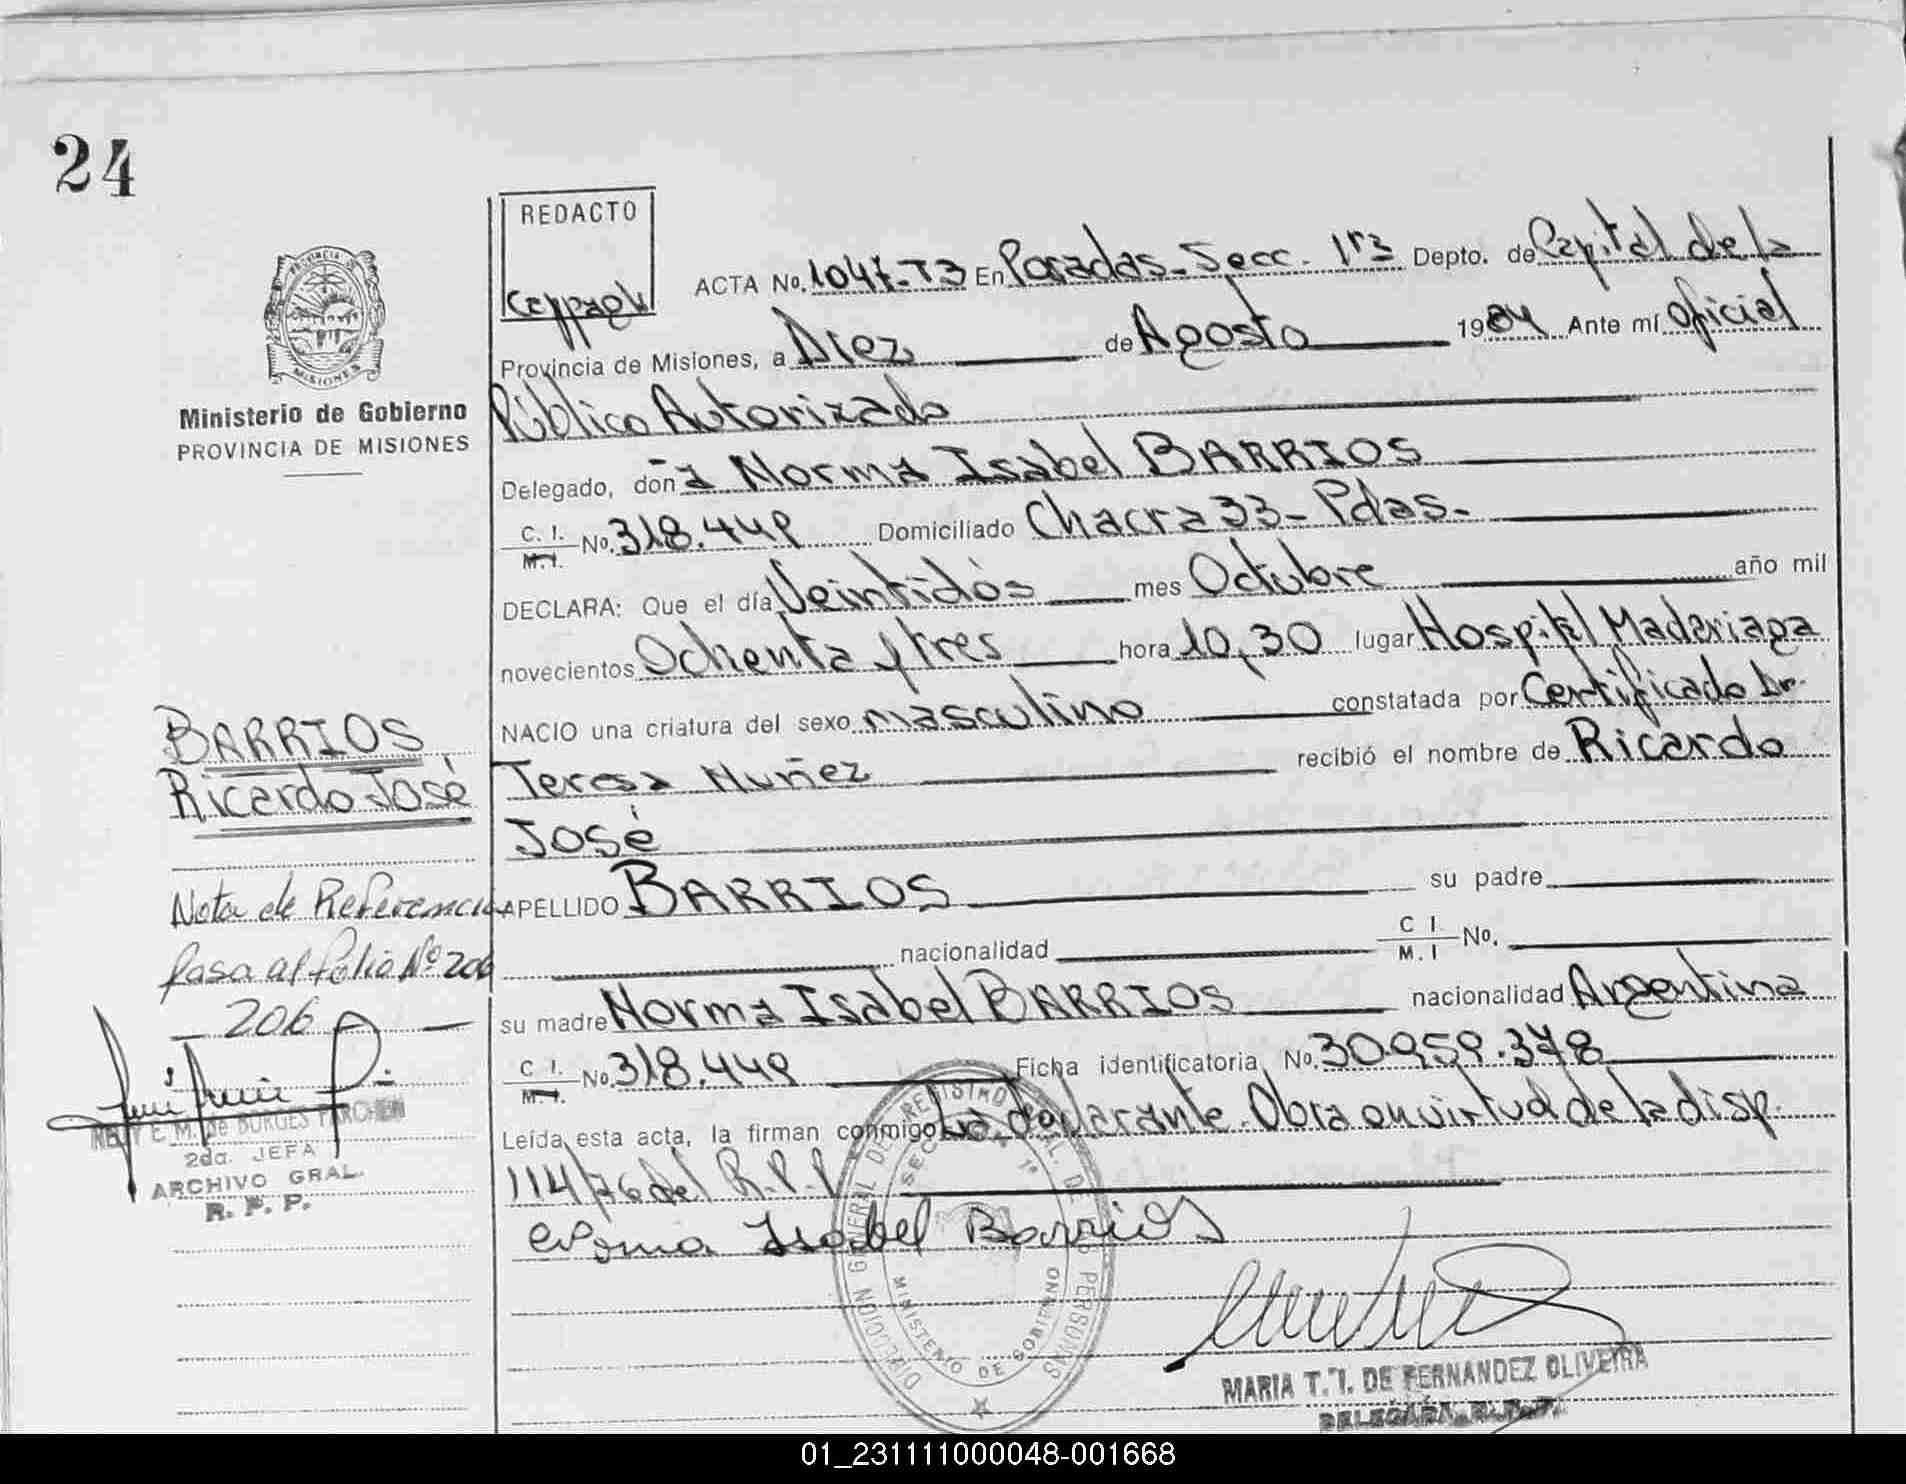 24
REDACTO
ACTA No. 1047-T3 En Posadas-Secc. 1ra Depto. de Capital de la
Provincia de Misiones, a Diez de Agosto 1984 Ante mí Oficial
Ministerio de Gobierno
PROVINCIA DE MISIONES
Público Autorizado
Delegado, doña Norma Isabel BARRIOS
C. I. M. I. No. 318.449 Domiciliado Chacra 33-Pdas.-
DECLARA: Que el día Veintidós mes Octubre año mil
novecientos Ochenta y tres hora 10,30 lugar Hospital Madariaga
NACIO una criatura del sexo masculino constatada por Certificado Dr.
Teresa Nuñez recibió el nombre de Ricardo
José
BARRIOS
Ricardo José
APELLIDO BARRIOS su padre
nacionalidad C I. M. I No.
Nota de Referencia
pasa al folio Nº 206
206
su madre Norma Isabel BARRIOS nacionalidad Argentina
C I. M. I. No. 318.449 Ficha identificatoria No. 30.959.378
Leída esta acta, la firman conmigo La declarante. Obra en virtud de la disp.
114/76 del R.P.P.
Isabel Barrios
M. de BORGES
2da. JEFA
ARCHIVO GRAL.
R. P. P.
DIRECCION GENERAL DE REGISTRO DE PERSONAS
MINISTERIO DE GOBIERNO
MARIA T. I. DE FERNANDEZ OLIVEIRA
DELEGADA R.P.P.
01_231111000048-001668